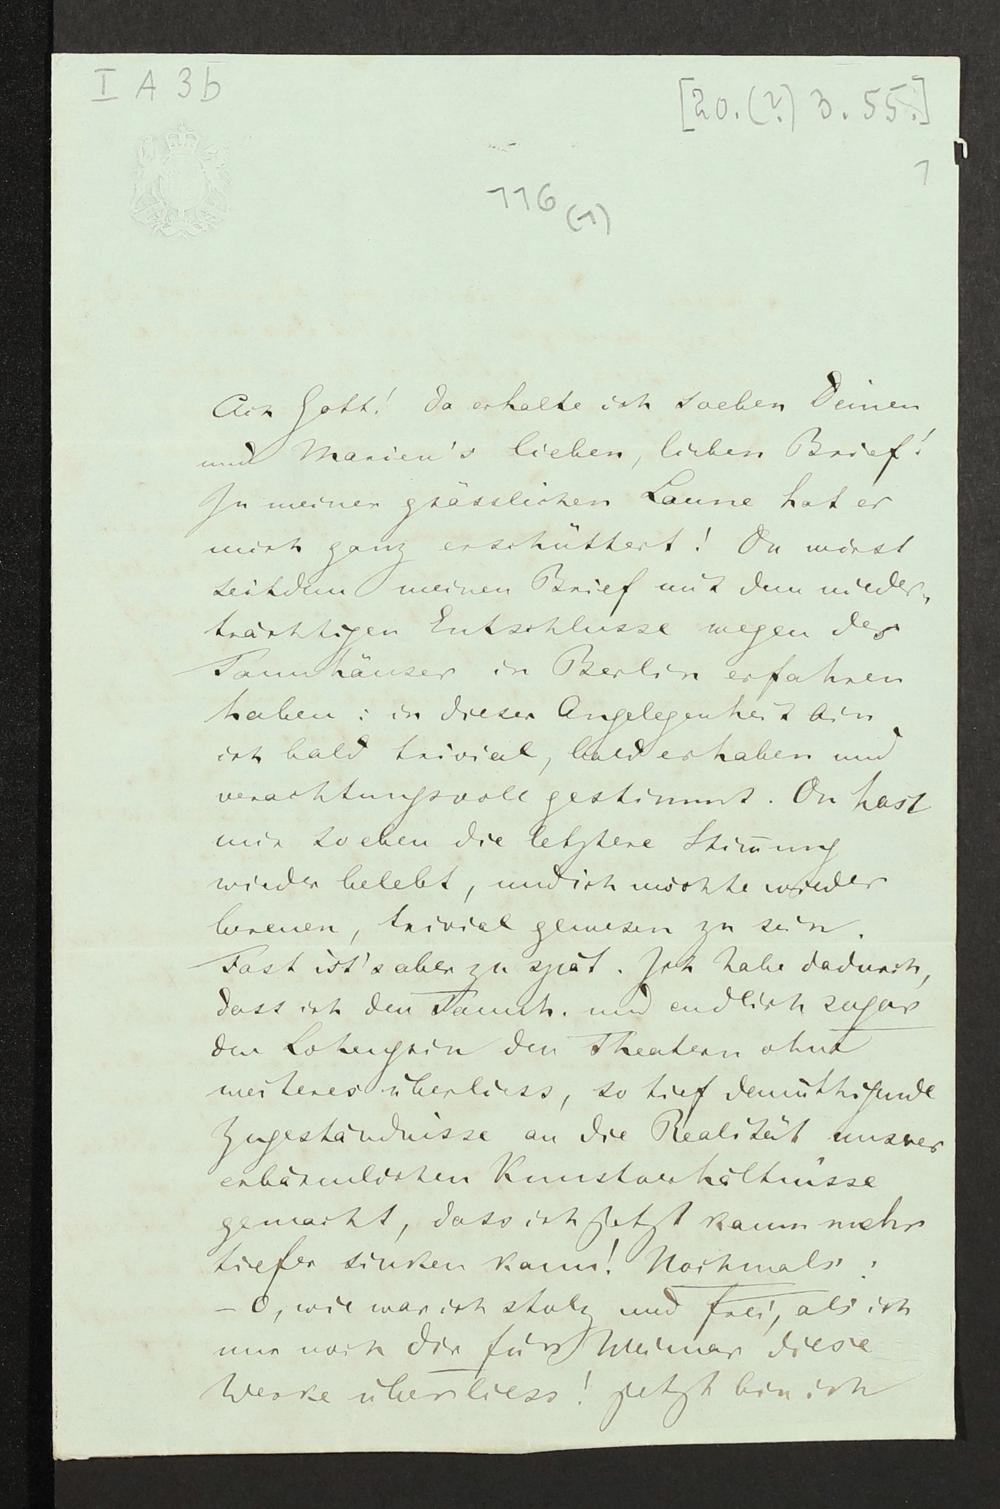 I A 3b
[20.(?) 3. 55.]
1
116 (1)
Ach Gott! Da erhalte ich soeben Deinen
und Marien's lieben, lieben Brief!
In meiner grässlichen Laune hat er
mich ganz erschüttert! Du wirst
seitdem meinen Brief mit dem nieder-
trächtigen Entschlusse wegen des
Tannhäuser in Berlin erfahren
haben: in dieser Angelegenheit bin
ich bald trivial, bald erhaben und
verachtungsvoll gestimmt. Du hast
mir soeben die letztere Stim̄ung
wieder belebt, und ich möchte wieder
bereuen, trivial gewesen zu sein.
Fast ist's aber zu spät. Ich habe dadurch,
dass ich den Tannh. und endlich sogar
den Lohengrin den Theatern ohne
weiteres überliess, so tief demüthigende
Zugeständnisse an die Realität unsrer
erbärmlichen Kunstverhältnisse
gemacht, dass ich jetzt kaum mehr
tiefer sinken kann! Nochmals:
– O, wie war ich stolz und frei, als ich
nur noch Dir für Weimar diese
Werke überliess! jetzt bin ich